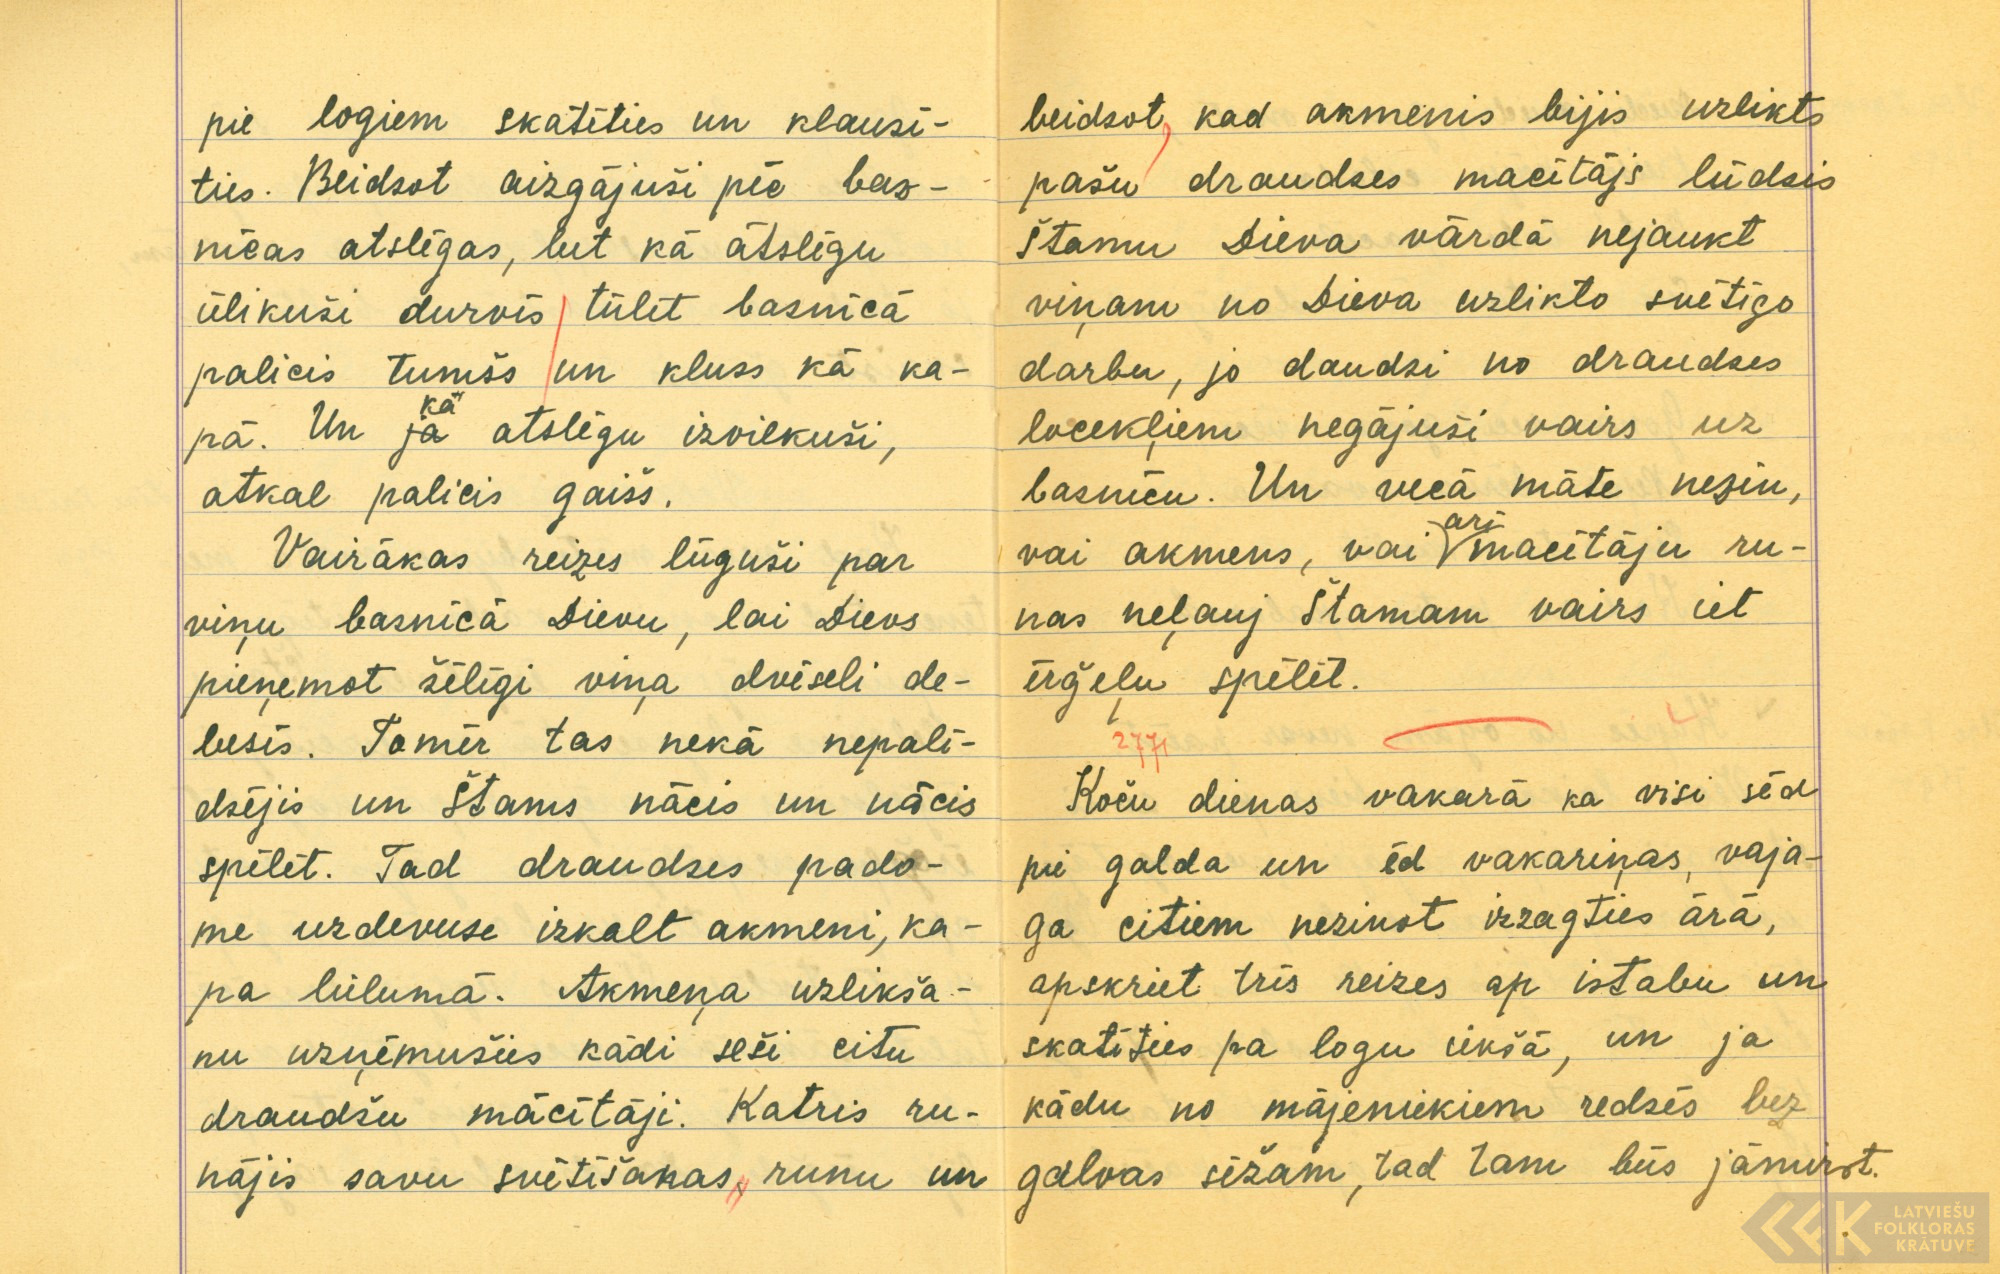 pie logiem skatīties un klausī-
ties. Beidzot aizgājuši pēc baz-
nīcas atslēgas, bet kā atslēgu
ielikuši durvīs tūlīt baznīcā
palicis tumšs un kluss kā ka-
pā. Un kā atslēgu izvilkuši,
atkal palicis gaišs.
Vairākas reizes lūguši par
viņu baznīcā Dievu, lai Dievs
pieņemot žēlīgi viņa dvēseli de-
besīs. Tomēr tas nekā nepalī-
dzējis un Štams nācis un nācis
spēlēt. Tad draudzes pado-
me uzdevuse izkalt akmeni, ka-
pa lielumā. Akmeņa uzlikša-
nu uzņēmušies kādi seši citu
draudžu mācītāji. Katris ru-
nājis savu svētīšanas runu un
beidzot, kad akmenis bijis uzlikts
pašu draudzes macītājs lūdzis
Štamu Dieva vārdā nejaukt
viņam no Dieva uzlikto svētīgo
darbu, jo daudzi no draudzes
locekļiem negājuši vairs uz
baznīcu. Un vecā māte nezin,
vai akmens, vai arī macītāju ru-
nas neļauj Štamam vairs iet
ērģeļu spēlēt.
2771
Koču dienas vakarā ka visi sēd
pie galda un ēd vakariņas, vaja-
ga citiem nezinot izzagties ārā,
apskriet trīs reizes ap istabu un
skatīties pa logu iekšā, un ja
kādu no mājeniekiem redzēs bez
galvas sēžam, tad tam būs jāmirst.
LATVIEŠU
FOLKLORAS
KRĀTUVE